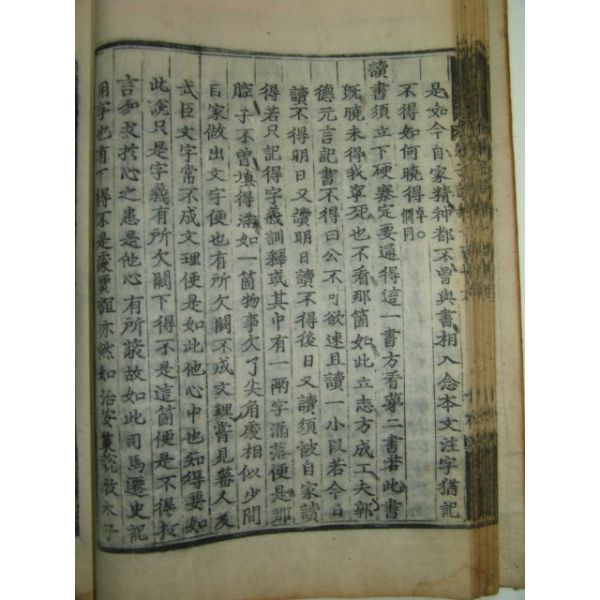 是如今自家精神都不曾與書相入念本文注字猶記
不得如何曉得淳○僴同
讀書須立下硬寨定要通得這一書方看第二書若此書
旣曉未得我寧死也不看那箇如此立志方成工夫郭
德元言記書不得曰公不可欲速且讀一小段若今日
讀不得明日又讀明日讀不得後日又讀須被自家讀
得若只記得字義訓釋或其中有一兩字漏落便是那
腔子不曾填得滿如一箇物事欠了尖角處相似少間
自家做出文字便也有所欠闕不成文理嘗見蕃人及
武臣文字常不成文理便是如此他心中也知得要如
此說只是字義有所欠闕下得不是這箇便是不得於
言勿求於心之患是他心有所蔽故如此司馬遷史記
用字也有下得不是處賈誼亦然如治安策說教太子